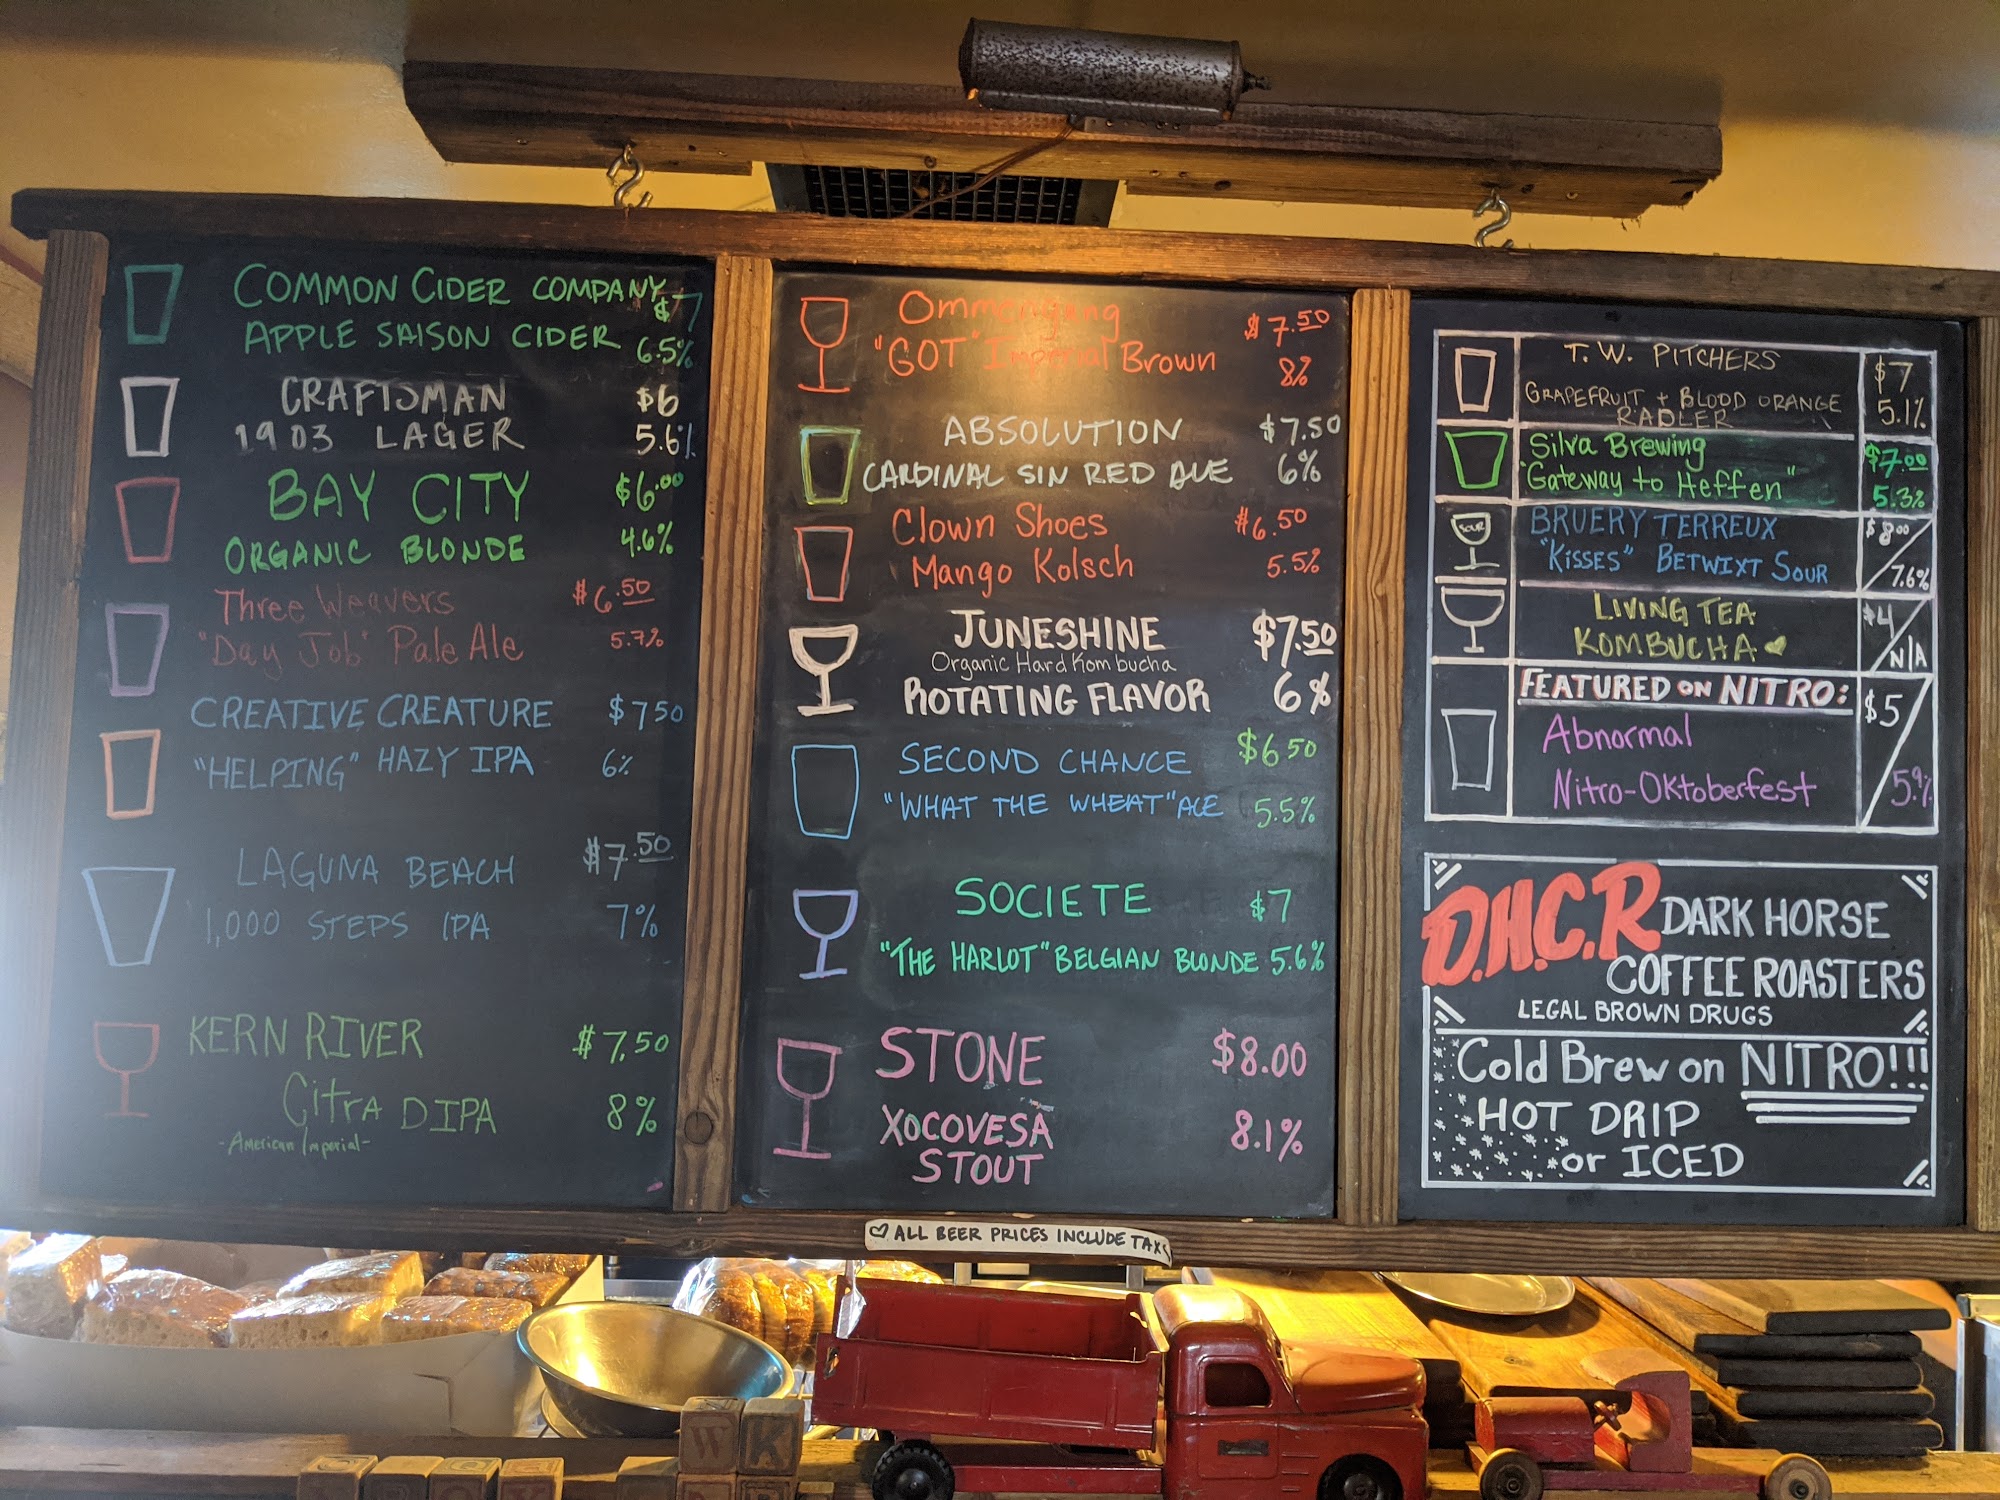 COMMON CIDER COMPANY $7
APPLE SAISON CIDER 6.5%
CRAFTSMAN $6
1903 LAGER 5.6%
BAY CITY $6.00
ORGANIC BLONDE 4.6%
Three Weavers $6.50
"Day Job" Pale Ale 5.7%
CREATIVE CREATURE $7.50
"HELPING" HAZY IPA 6%
LAGUNA BEACH $7.50
1,000 STEPS IPA 7%
KERN RIVER $7.50
Citra DIPA 8%
-American Imperial-
Ommengang $7.50
"GOT" Imperial Brown 8%
ABSOLUTION $7.50
CARDINAL SIN RED ALE 6%
Clown Shoes $6.50
Mango Kolsch 5.5%
JUNESHINE $7.50
Organic Hard Kombucha
ROTATING FLAVOR 6%
SECOND CHANCE $6.50
"WHAT THE WHEAT" ALE 5.5%
SOCIETE $7
"THE HARLOT" BELGIAN BLONDE 5.6%
STONE $8.00
XOCOVESA 8.1%
STOUT
T.W. PITCHERS $7
GRAPEFRUIT + BLOOD ORANGE 5.1%
RADLER
Silva Brewing $7.00
"Gateway to Heffen" 5.3%
SOUR
BRUERY TERREUX $8.00
"KISSES" BETWIXT SOUR 7.6%
LIVING TEA $4
KOMBUCHA N/A
FEATURED ON NITRO: $5
Abnormal
Nitro-Oktoberfest 5.9%
D.H.C.R DARK HORSE
COFFEE ROASTERS
LEGAL BROWN DRUGS
Cold Brew on NITRO!!!
HOT DRIP
or ICED
ALL BEER PRICES INCLUDE TAX
W K